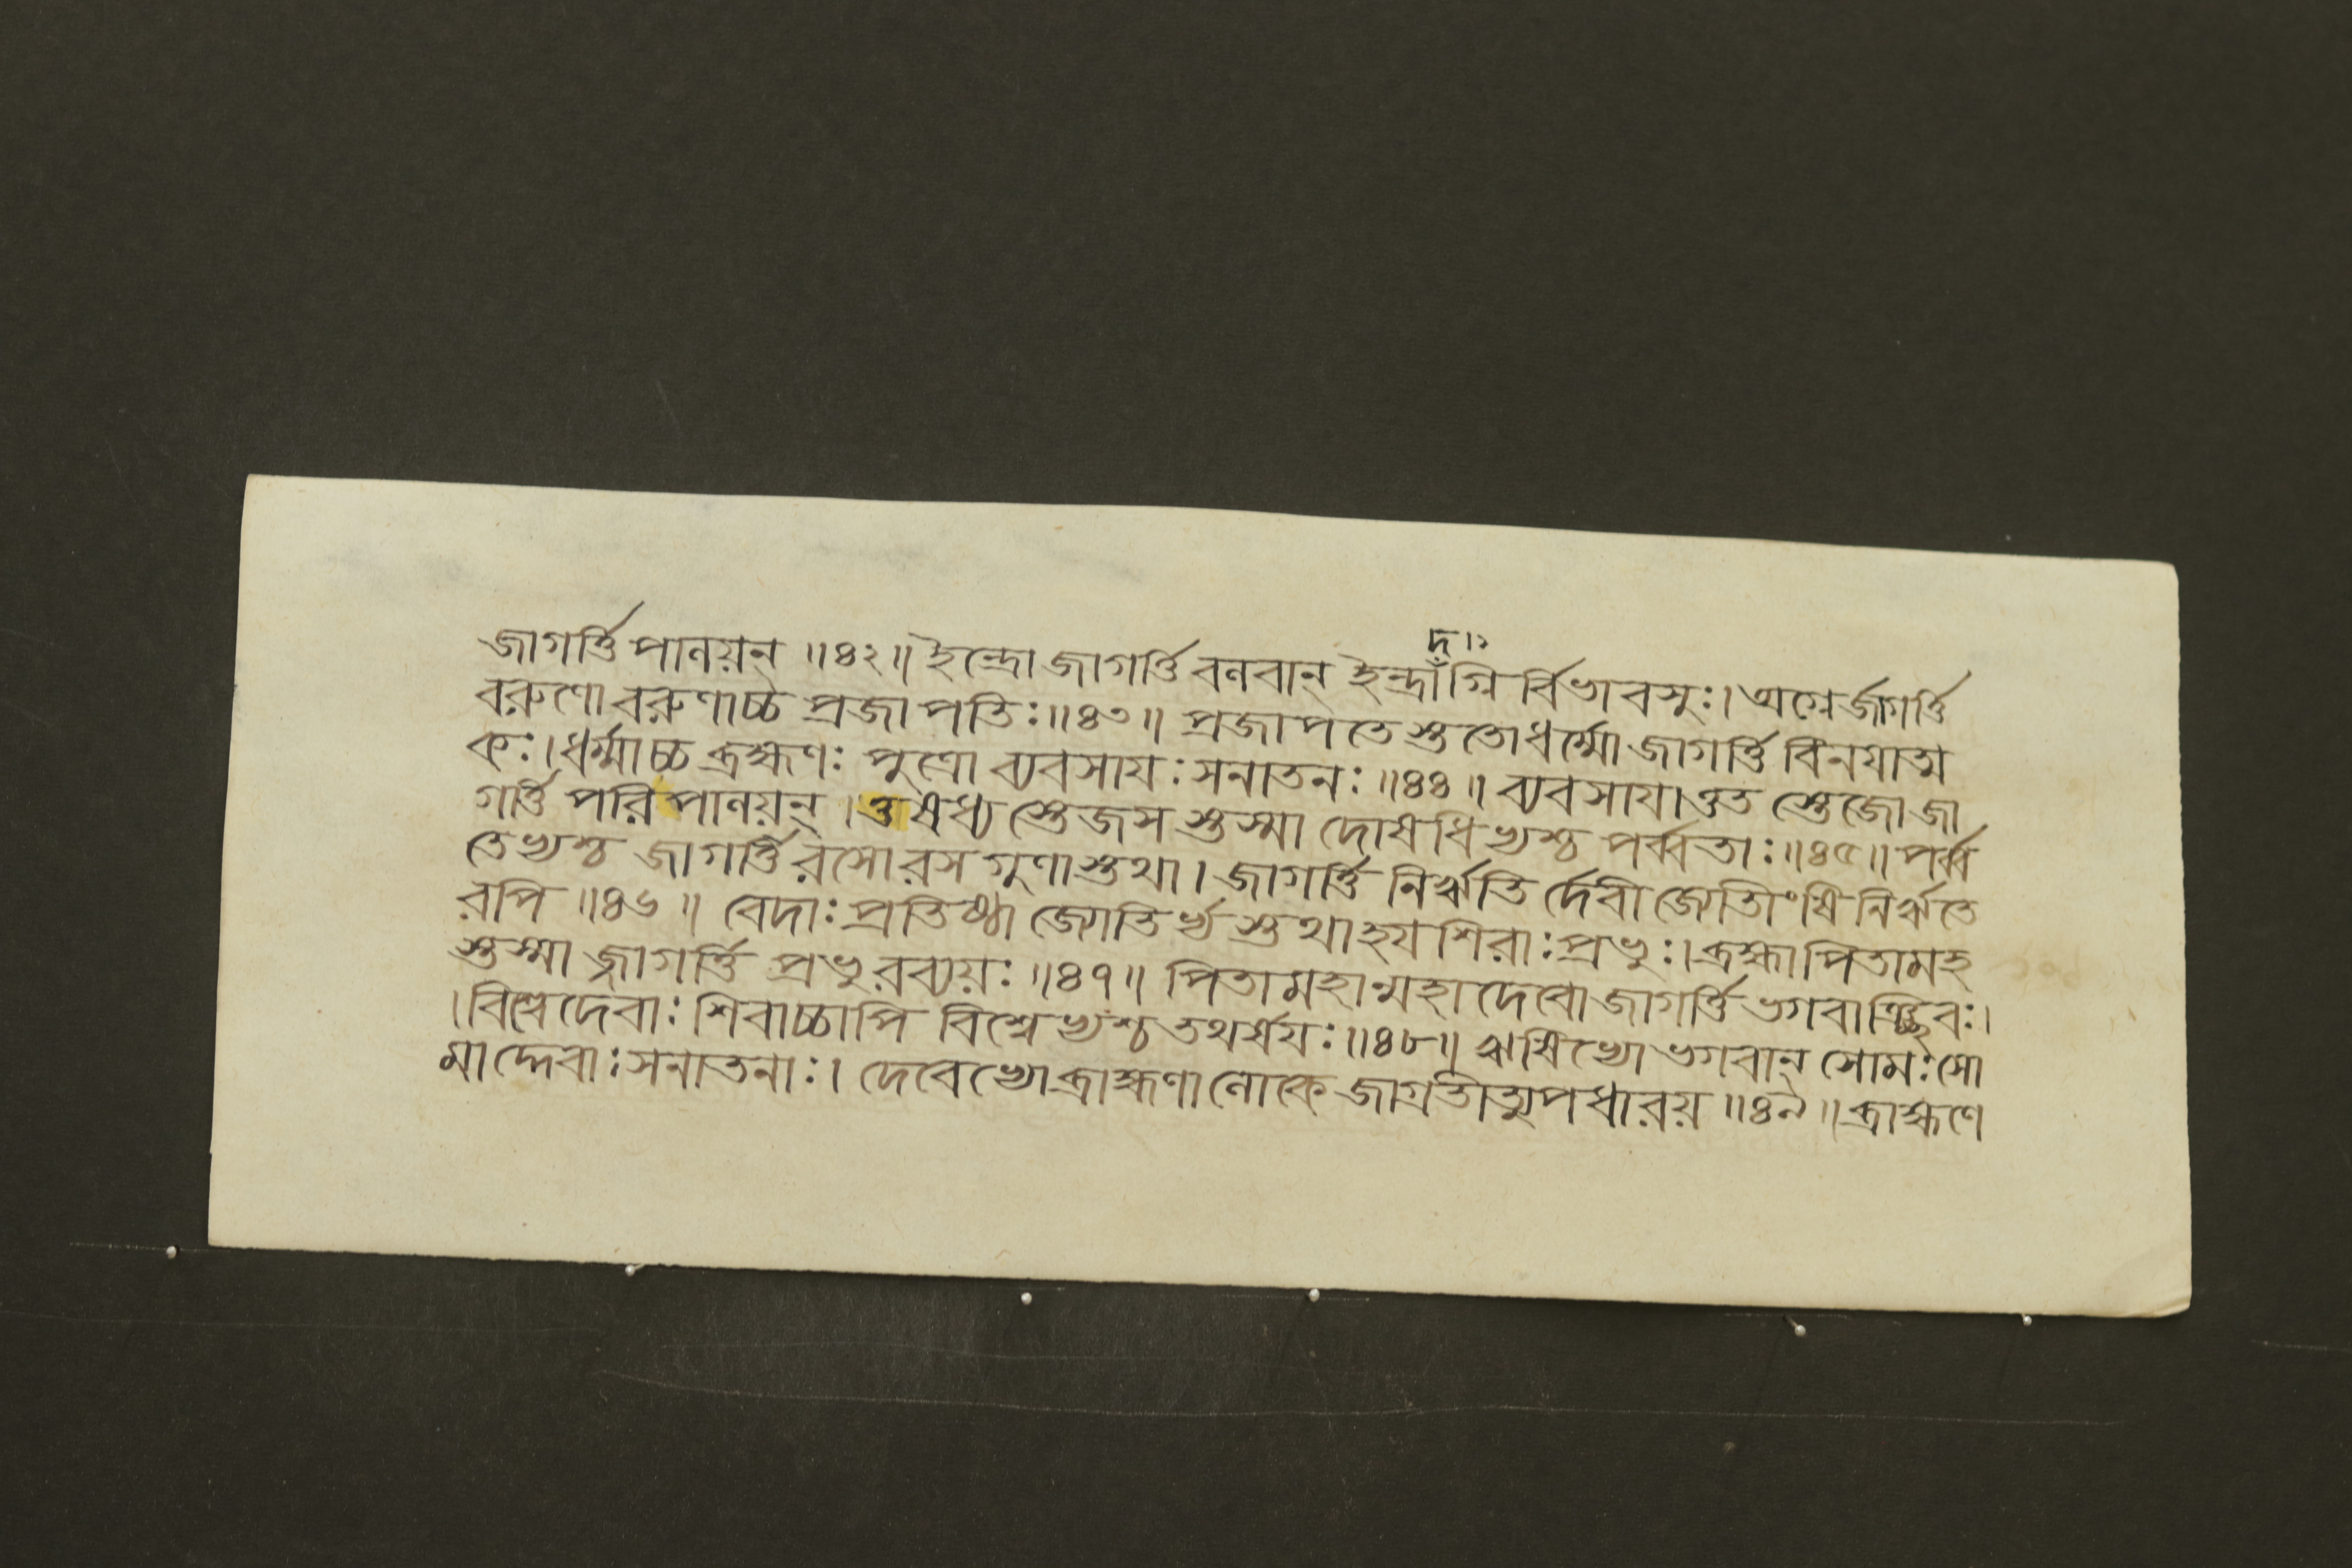 দ ১
জাগর্ত্তি পালয়ন্ ॥৪২॥ ইন্দ্রো জাগর্ত্তি বলবান্ ইন্দ্রাগ্নি র্বিভাবসুঃ। অগ্নের্জাগর্ত্তি
বরুণো বরুণাচ্চ প্রজাপতিঃ॥৪৩॥ প্রজাপতেস্ততো ধর্ম্মো জাগর্ত্তি বিনয়াত্ম
কঃ। ধর্ম্মাচ্চ ব্রহ্মণঃ পুত্রো ব্যবসায়ঃ সনাতনঃ ॥৪৪॥ ব্যবসায়াত্তত স্তেজো জা
গর্ত্তি পরিপালয়ন্। ওষধ্য স্তেজস স্তস্মা দোষধিভ্যশ্চ পর্ব্বতাঃ॥৪৫॥ পর্ব্ব
তেভ্যশ্চ জাগর্ত্তি রসো রস গুণাস্তথা। জাগর্ত্তি নির্ঋতি র্দেবী জ্যোতীংষি নির্ঋতে
রপি ॥৪৬॥ বেদাঃ প্রতিষ্ঠা জ্যোতির্ভ্য স্তথা হয়শিরাঃ প্রভুঃ। ব্রহ্মা পিতামহ
স্তস্মা জ্জাগর্ত্তি প্রভুরব্যয়ঃ ॥৪৭॥ পিতামহান্মহাদেবো জাগর্ত্তি ভগবাঞ্ছিবঃ।
। বিশ্বেদেবাঃ শিবাচ্চাপি বিশ্বেভ্যশ্চ তথর্ষয়ঃ॥৪৮॥ ঋষিভ্যো ভগবান্ সোমঃ সো
মাদ্দেবাঃ সনাতনাঃ। দেবেভ্যো ব্রাহ্মণা লোকে জাগ্রতীত্যুপধারয় ॥৪৯॥ ব্রাহ্মণে